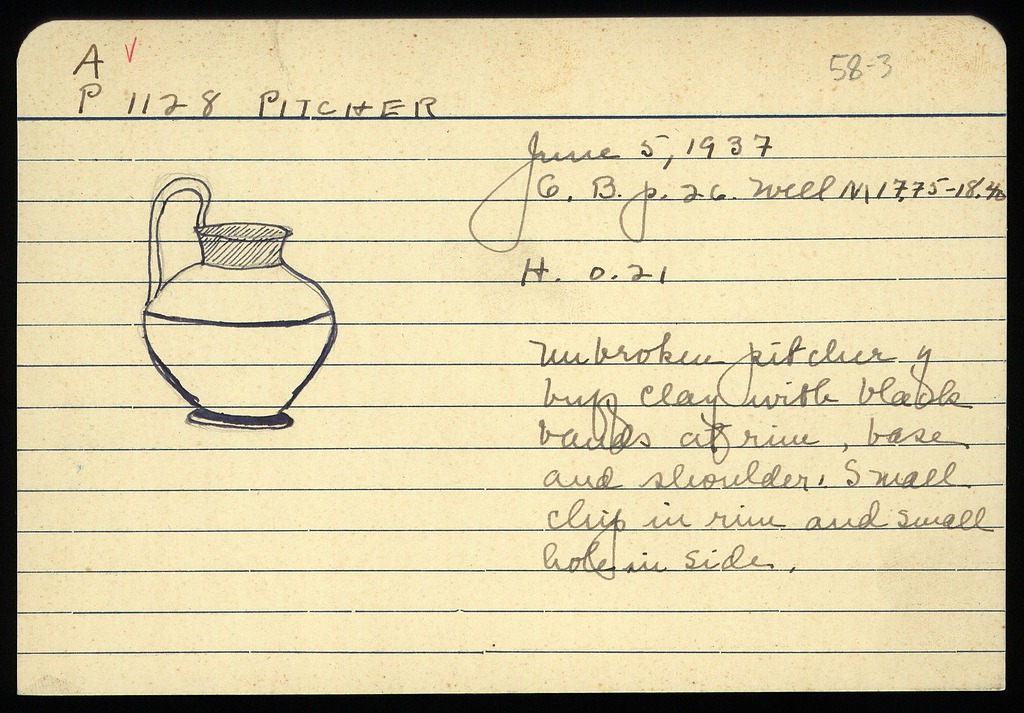 A ✓
58-3
P 1128 PITCHER
June 5, 1937
G. B. p. 26. Well N, 17.75-18.40
H. 0.21
Unbroken pitcher of
buff clay with black
bands at rim, base
and shoulder. Small
chip in rim and small
hole in side.